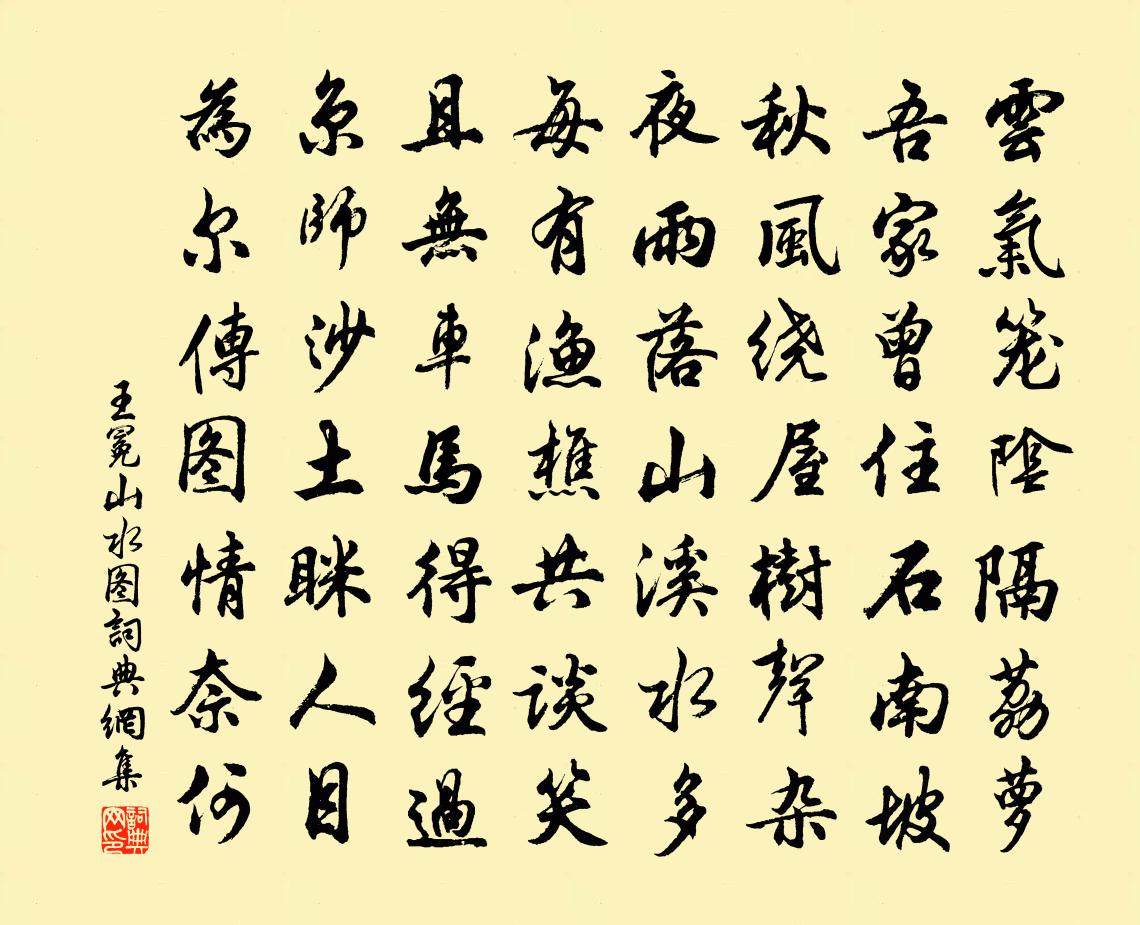 雲氣笼陰隔荔萝
吾家曾住石南坡
秋風绕屋樹聲杂
夜雨落山溪水多
每有漁樵共談笑
且無車馬得經過
京師沙土眯人目
為尔傳图情奈何
王冕山水图詞典網集
詞典网印